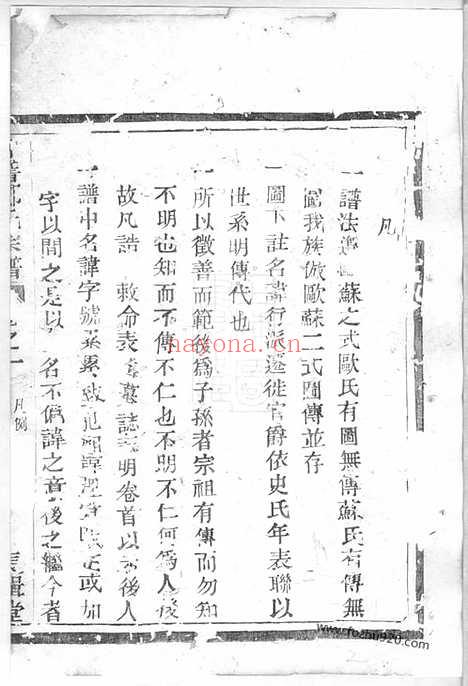 凡
一譜法遵蘇之式歐氏有圖無傳蘇氏有傳無
圖我族倣歐蘇二式圖傳並存
一圖下註名諱行派遷徙官爵依史氏年表聯以
世系明傳代也
一所以徵善而範後爲子孫者宗祖有傳而勿知
不明也知而不傳不仁也不明不仁何爲人後
故凡誥敕命表墓誌明卷首以示後人
一譜中名諱字號累累致犯定或加
字以間之是以名不偏諱之意後之繼今者
宗譜
凡例
堂
hayona.cn
www.fozhu920.com